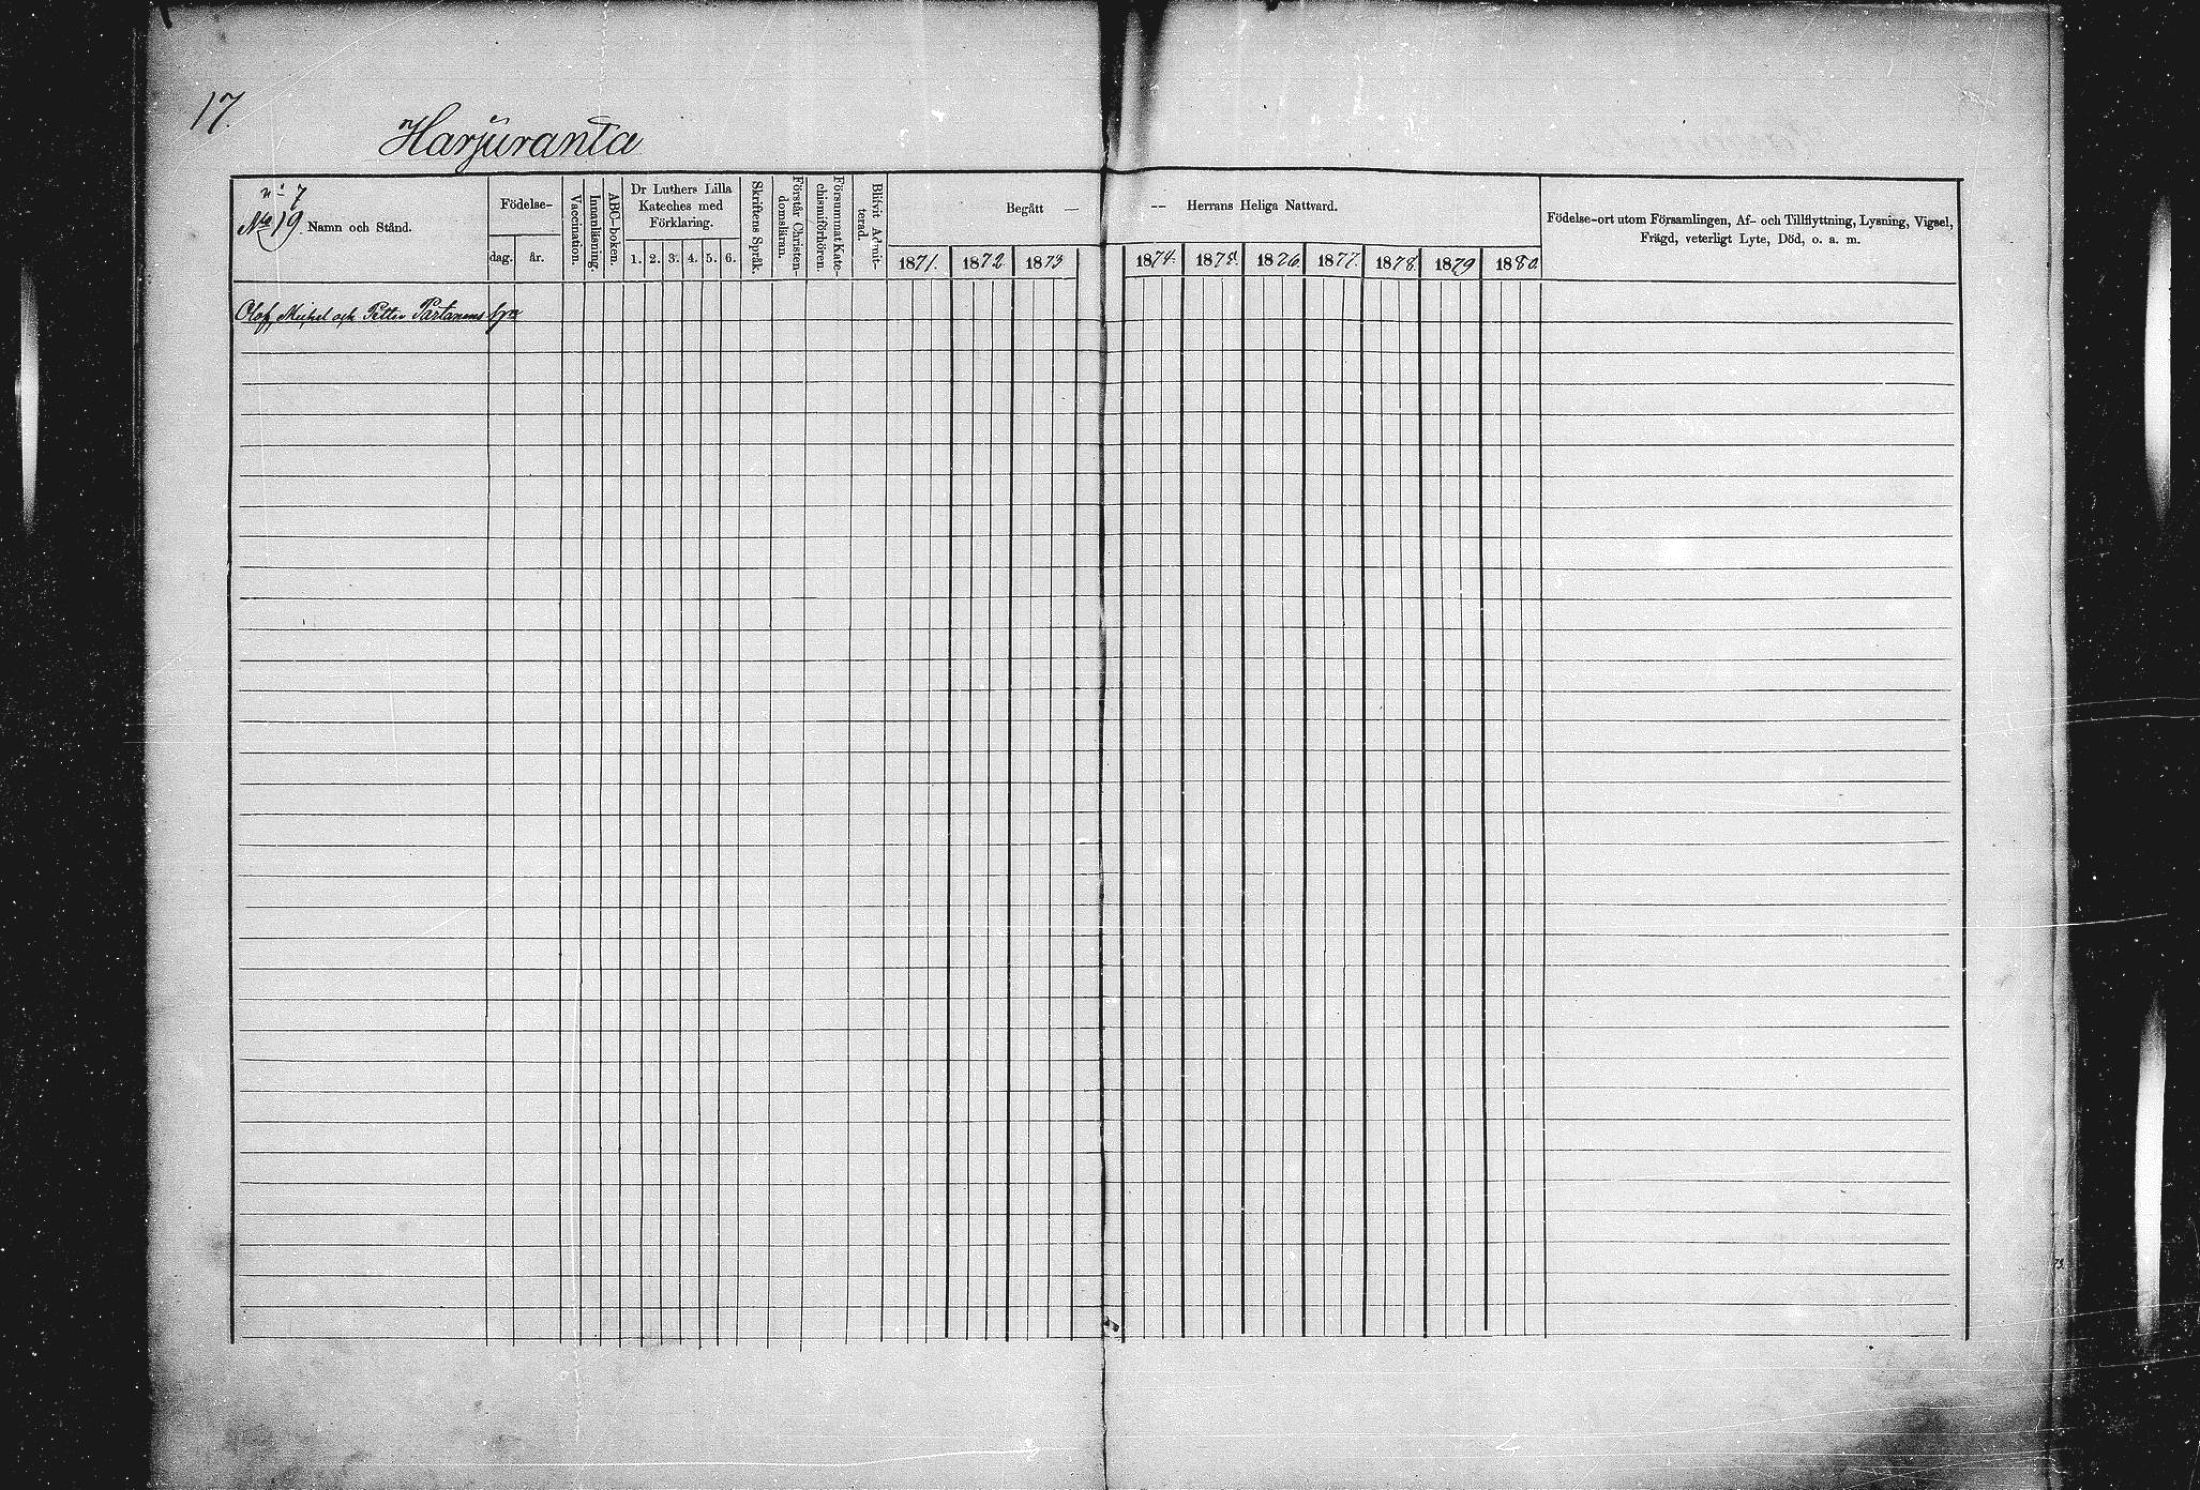 17.
Harjuranta
nº 7
No 19. Namn och Stånd.
Födelse-
dag. år.
Vaccination.
Innanläsning.
ABC-boken.
Dr Luthers Lilla
Kateches med
Förklaring.
1. 2. 3. 4. 5. 6.
Skriftens Språk.
Förstår Christen-
domsläran.
Försummat Kate-
chismiförhören.
Blifvit Admit-
terad.
Begått —
1871. 1872 1873
— Herrans Heliga Nattvard.
1874. 1875. 1876. 1877. 1878. 1879 1880.
Födelse-ort utom Församlingen, Af- och Tillflyttning, Lysning, Vigsel,
Frägd, veterligt Lyte, Död, o. a. m.
Olof, Michel och Petter Partanens